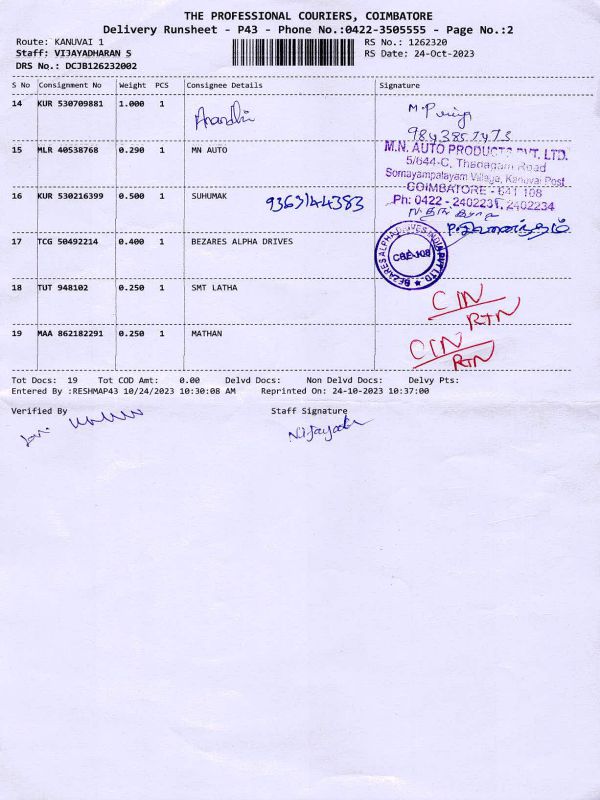 THE PROFESSIONAL COURIERS, COIMBATORE
Delivery Runsheet - P43 - Phone No.:0422-3505555 - Page No.:2
Route: KANUVAI 1 RS No.: 1262320
Staff: VIJAYADHARAN S RS Date: 24-Oct-2023
DRS No.: DCJB126232002
S No Consignment No Weight PCS Consignee Details Signature
14 KUR 530709881 1.000 1 Anandhi M.Priya
9843857473
15 MLR 40538768 0.290 1 MN AUTO M.N. AUTO PRODUCTS PVT. LTD.
5/644-C, Thadagam Road
Somayampalayam Village, Kanuvai Post
COIMBATORE - 641 108
16 KUR 530216399 0.500 1 SUHUMAK 9363144383 Ph: 0422 - 2402231, 2402234
17 TCG 50492214 0.400 1 BEZARES ALPHA DRIVES BEZARES ALPHA DRIVES INDIA PVT LTD. CBE-108
18 TUT 948102 0.250 1 SMT LATHA CIN
RTN
19 MAA 862182291 0.250 1 MATHAN CIN
RTN
Tot Docs: 19 Tot COD Amt: 0.00 Delvd Docs: Non Delvd Docs: Delvy Pts:
Entered By :RESHMAP43 10/24/2023 10:30:08 AM Reprinted On: 24-10-2023 10:37:00
Verified By Staff Signature
Vijayadh